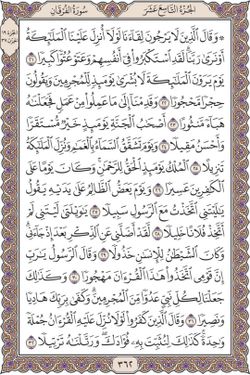 الجزء التاسع عشر
سورة الفرقان
۞ وَقَالَ ٱلَّذِينَ لَا يَرْجُونَ لِقَآءَنَا لَوْلَآ أُنزِلَ عَلَيْنَا ٱلْمَلَٰٓئِكَةُ
أَوْ نَرَىٰ رَبَّنَا ۗ لَقَدِ ٱسْتَكْبَرُوا۟ فِىٓ أَنفُسِهِمْ وَعَتَوْ عُتُوًّا كَبِيرًا ﴿٢١﴾
يَوْمَ يَرَوْنَ ٱلْمَلَٰٓئِكَةَ لَا بُشْرَىٰ يَوْمَئِذٍ لِّلْمُجْرِمِينَ وَيَقُولُونَ
حِجْرًا مَّحْجُورًا ﴿٢٢﴾ وَقَدِمْنَآ إِلَىٰ مَا عَمِلُوا۟ مِنْ عَمَلٍ فَجَعَلْنَٰهُ
هَبَآءً مَّنثُورًا ﴿٢٣﴾ أَصْحَٰبُ ٱلْجَنَّةِ يَوْمَئِذٍ خَيْرٌ مُّسْتَقَرًّا
وَأَحْسَنُ مَقِيلًا ﴿٢٤﴾ وَيَوْمَ تَشَقَّقُ ٱلسَّمَآءُ بِٱلْغَمَٰمِ وَنُزِّلَ ٱلْمَلَٰٓئِكَةُ
تَنزِيلًا ﴿٢٥﴾ ٱلْمُلْكُ يَوْمَئِذٍ ٱلْحَقُّ لِلرَّحْمَٰنِ ۚ وَكَانَ يَوْمًا عَلَى
ٱلْكَٰفِرِينَ عَسِيرًا ﴿٢٦﴾ وَيَوْمَ يَعَضُّ ٱلظَّالِمُ عَلَىٰ يَدَيْهِ يَقُولُ
يَٰلَيْتَنِى ٱتَّخَذْتُ مَعَ ٱلرَّسُولِ سَبِيلًا ﴿٢٧﴾ يَٰوَيْلَتَىٰ لَيْتَنِى لَمْ
أَتَّخِذْ فُلَانًا خَلِيلًا ﴿٢٨﴾ لَّقَدْ أَضَلَّنِى عَنِ ٱلذِّكْرِ بَعْدَ إِذْ جَآءَنِى ۗ
وَكَانَ ٱلشَّيْطَٰنُ لِلْإِنسَٰنِ خَذُولًا ﴿٢٩﴾ وَقَالَ ٱلرَّسُولُ يَٰرَبِّ
إِنَّ قَوْمِى ٱتَّخَذُوا۟ هَٰذَا ٱلْقُرْءَانَ مَهْجُورًا ﴿٣٠﴾ وَكَذَٰلِكَ
جَعَلْنَا لِكُلِّ نَبِىٍّ عَدُوًّا مِّنَ ٱلْمُجْرِمِينَ ۗ وَكَفَىٰ بِرَبِّكَ هَادِيًا
وَنَصِيرًا ﴿٣١﴾ وَقَالَ ٱلَّذِينَ كَفَرُوا۟ لَوْلَا نُزِّلَ عَلَيْهِ ٱلْقُرْءَانُ جُمْلَةً
وَٰحِدَةً ۚ كَذَٰلِكَ لِنُثَبِّتَ بِهِۦ فُؤَادَكَ ۖ وَرَتَّلْنَٰهُ تَرْتِيلًا ﴿٣٢﴾
٣٦٢